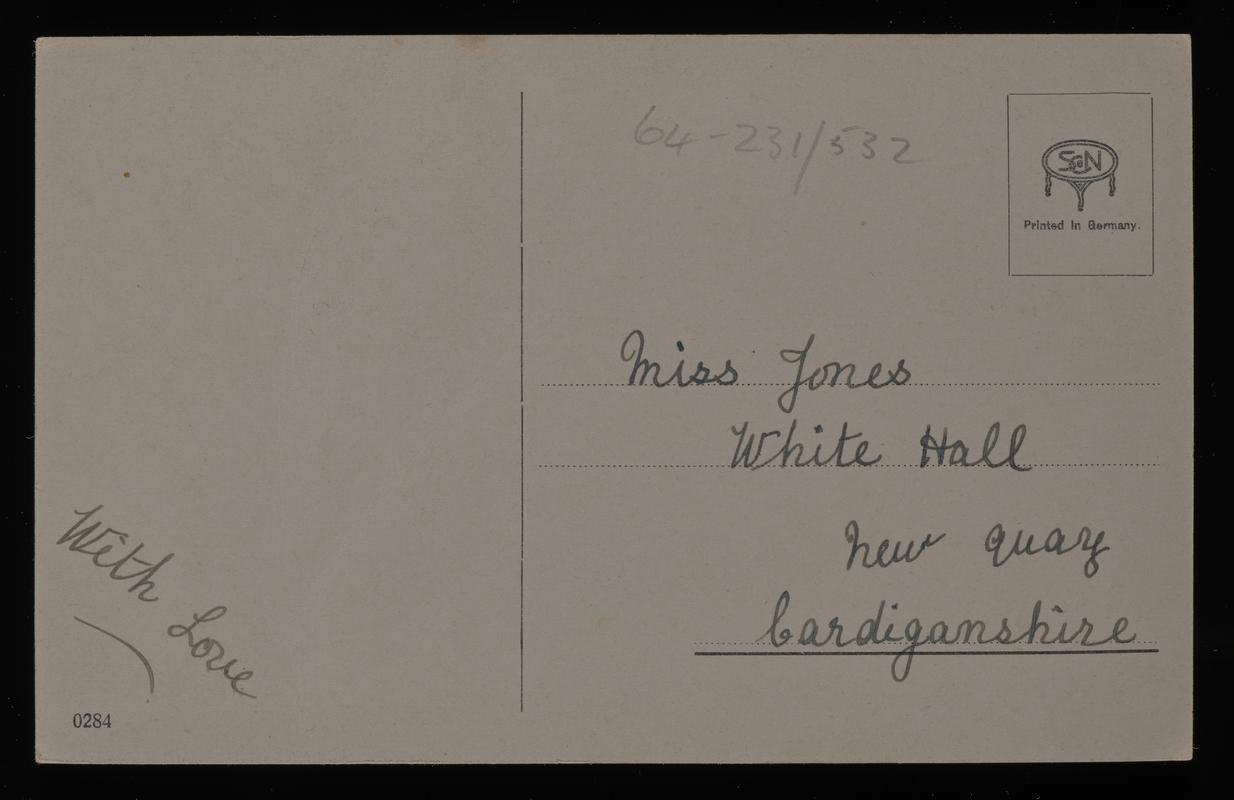 64-231/532
S&N
Printed in Germany.
Miss Jones
White Hall
New Quay
Cardiganshire
With Love
0284